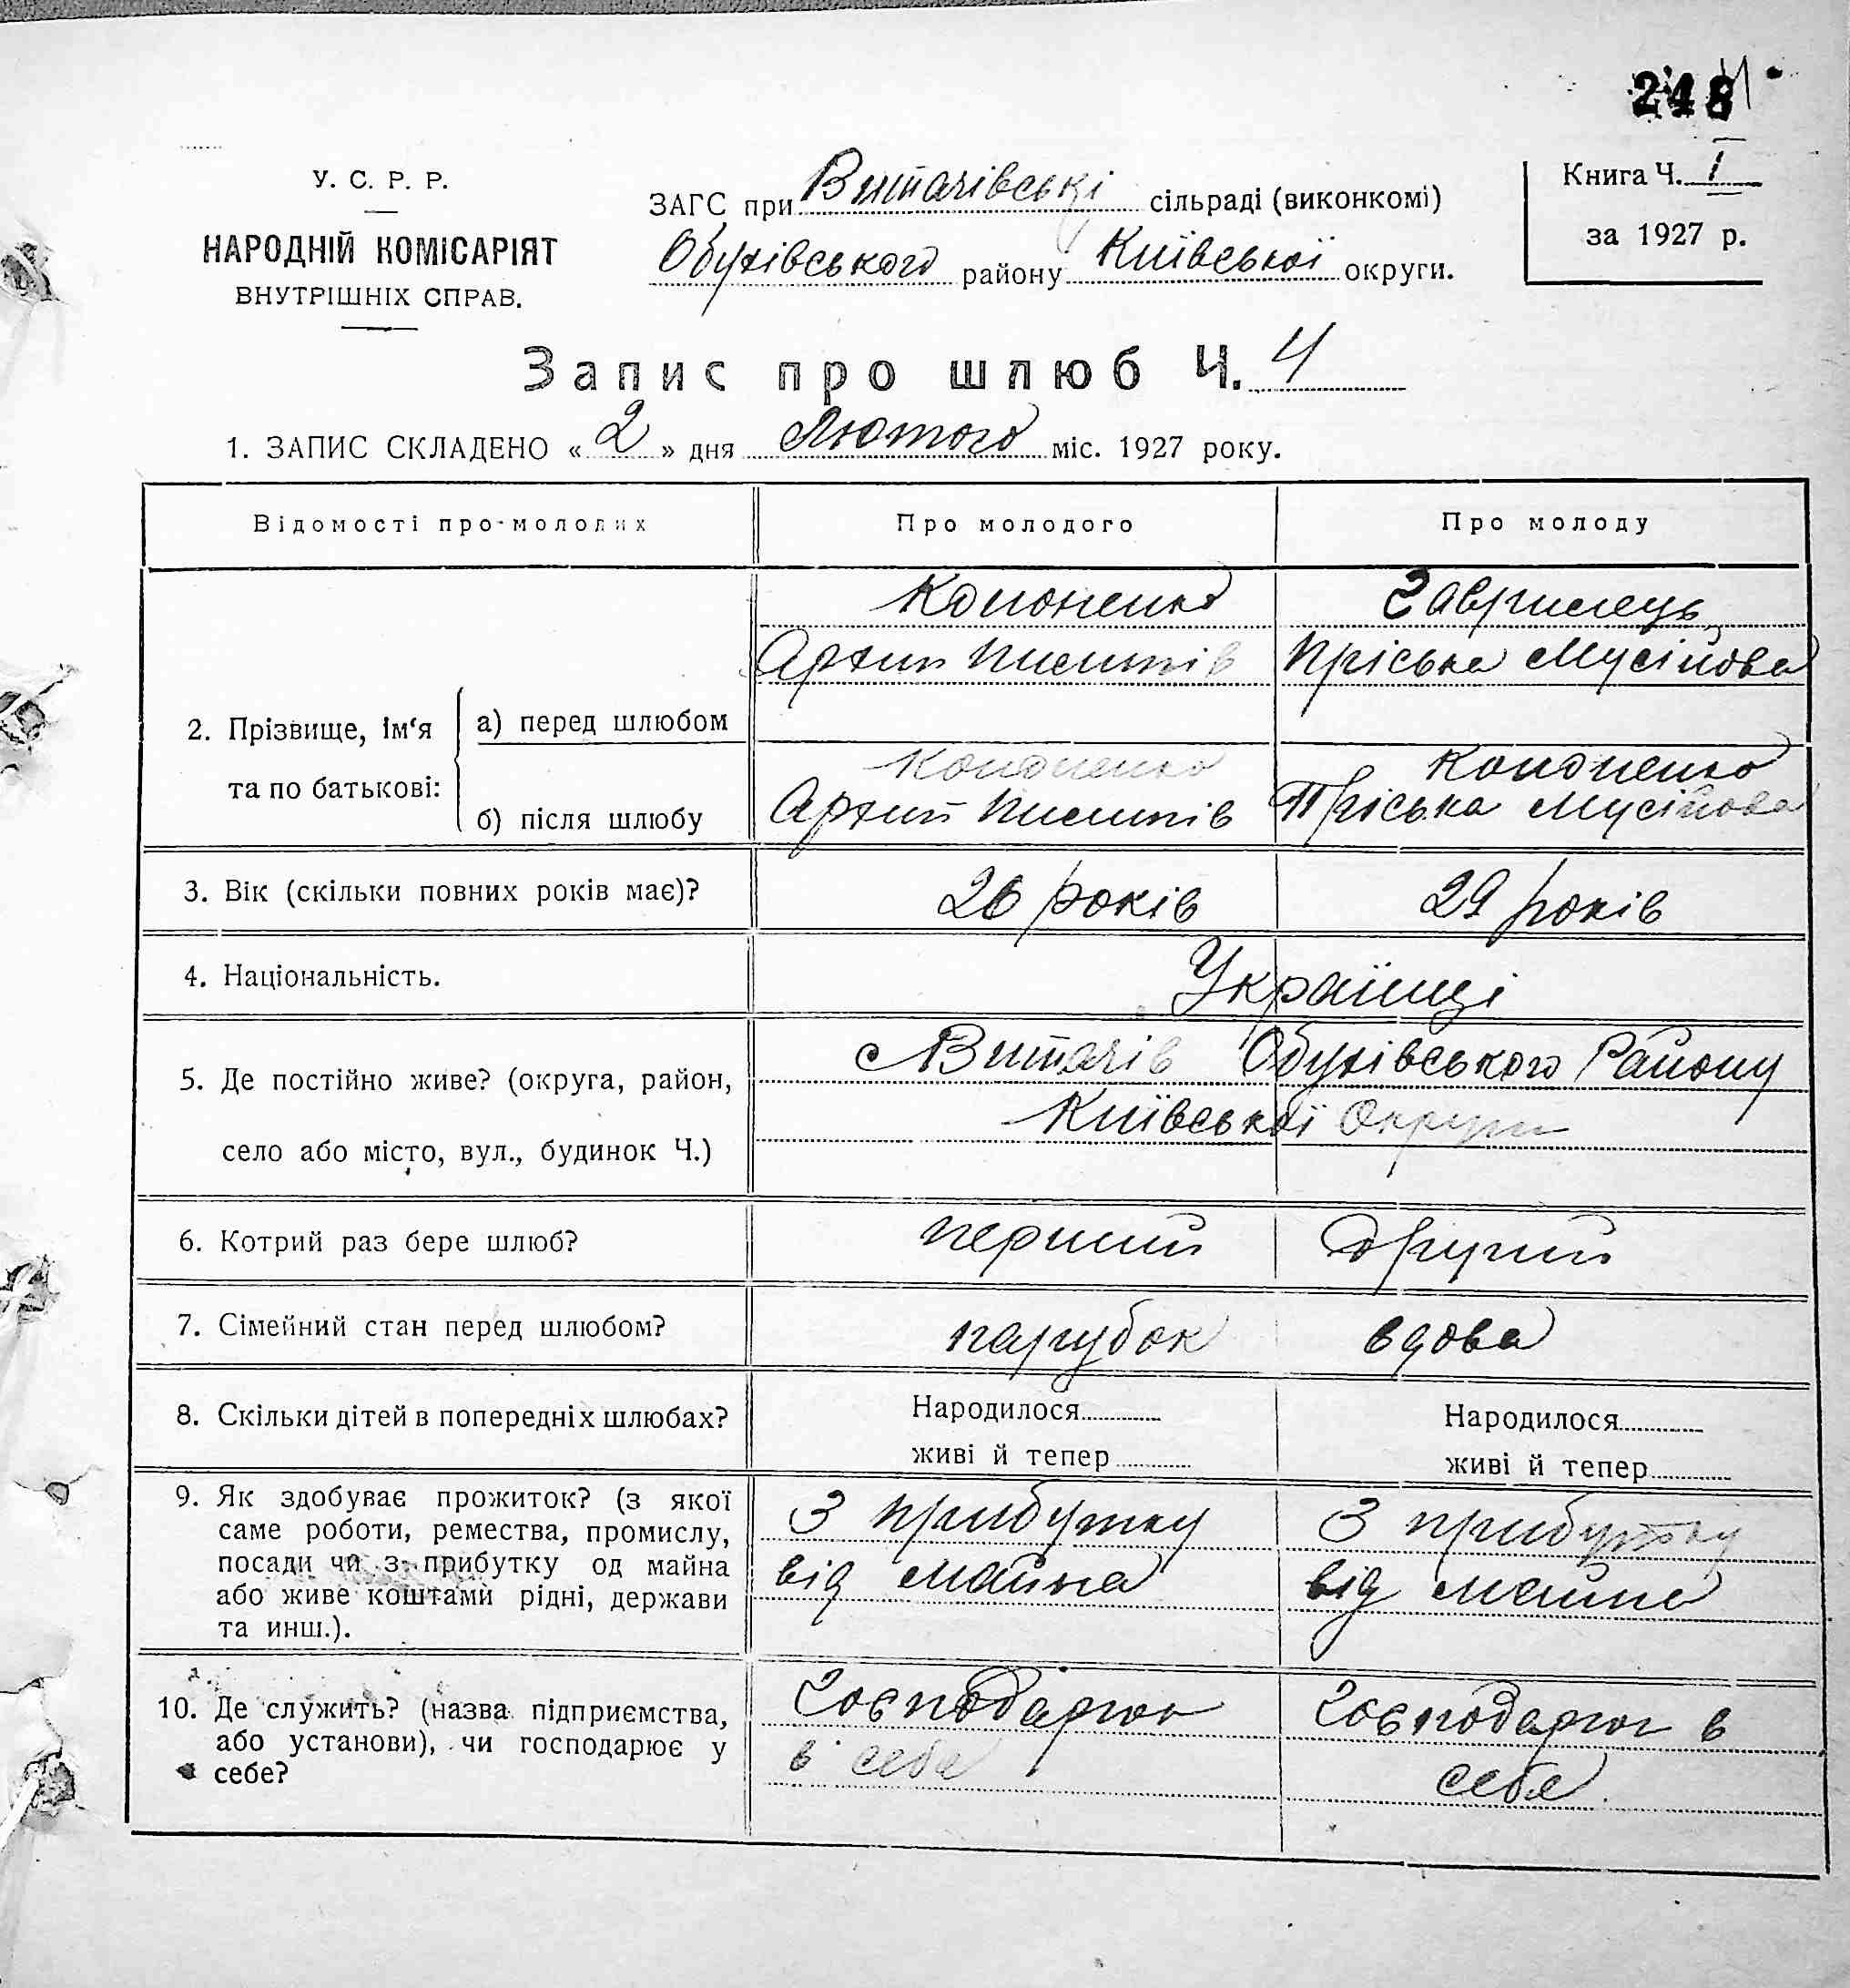 248
У. С. Р. Р.
НАРОДНІЙ КОМІСАРІЯТ
ВНУТРІШНІХ СПРАВ.
ЗАГС при Витачівські сільраді (виконкомі)
Обухівського району Київської округи.
Книга Ч. I
за 1927 р.
Запис про шлюб Ч. 4
1. ЗАПИС СКЛАДЕНО « 2 » дня Лютого міс. 1927 року.
Відомості про молодих
Про молодого
Про молоду
2. Прізвище, ім‘я та по батькові:
а) перед шлюбом
Кононенко
Архип
Гаврилець
Пріська Мусійова
б) після шлюбу
Кононенко
Архип
Кононенко
Пріська Мусійова
3. Вік (скільки повних років має)?
26 років
29 років
4. Національність.
Українці
5. Де постійно живе? (округа, район,
село або місто, вул., будинок Ч.)
с Витачів Обухівського Району
Київської Округи
6. Котрий раз бере шлюб?
перший
другий
7. Сімейний стан перед шлюбом?
парубок
вдова
8. Скільки дітей в попередніх шлюбах?
Народилося
живі й тепер
Народилося
живі й тепер
9. Як здобуває прожиток? (з якої
саме роботи, ремества, промислу,
посади чи з прибутку од майна
або живе коштами рідні, держави
та инш.).
З прибутку
від майна
З прибутку
від майна
10. Де служить? (назва підприємства,
або установи), чи господарює у
себе?
Господарює
в себе
Господарює в
себе